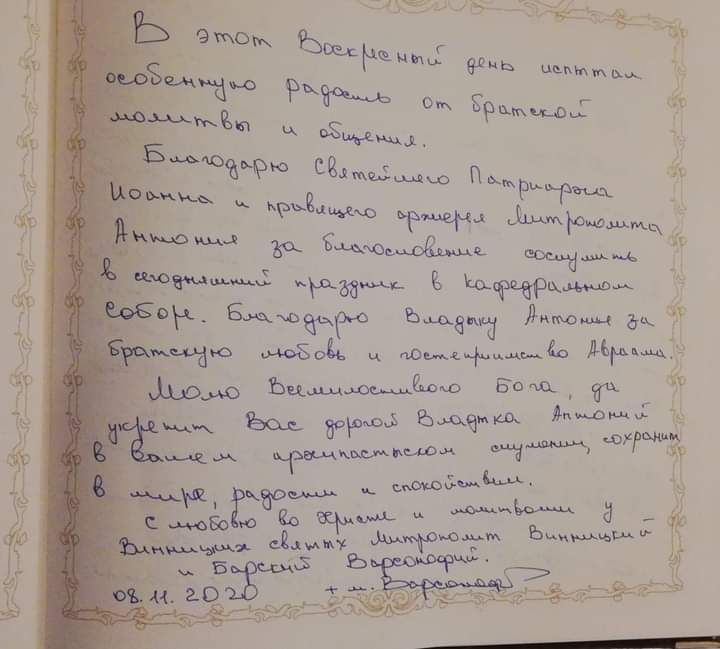 В этот Воскресный день испытал
особенную радость от братской
молитвы и общения.
Благодарю Святейшего Патриарха
Иоанна и правящего архиерея Митрополита
Антония за благословение сослужить
в сегодняшний праздник в кафедральном
соборе. Благодарю Владыку Антония за
братскую любовь и гостеприимство Авраама.
Молю Всемилостивого Бога, да
укрепит Вас дорогой Владыка Антоний
в вашем архипастыском служении, сохранит
в мире, радости и спокойствии.
С любовью во Христе и молитвами у
Винницких святых Митрополит Винницкий
и Барский Варсонофий.
08.11.2020 + м. Варсонофий